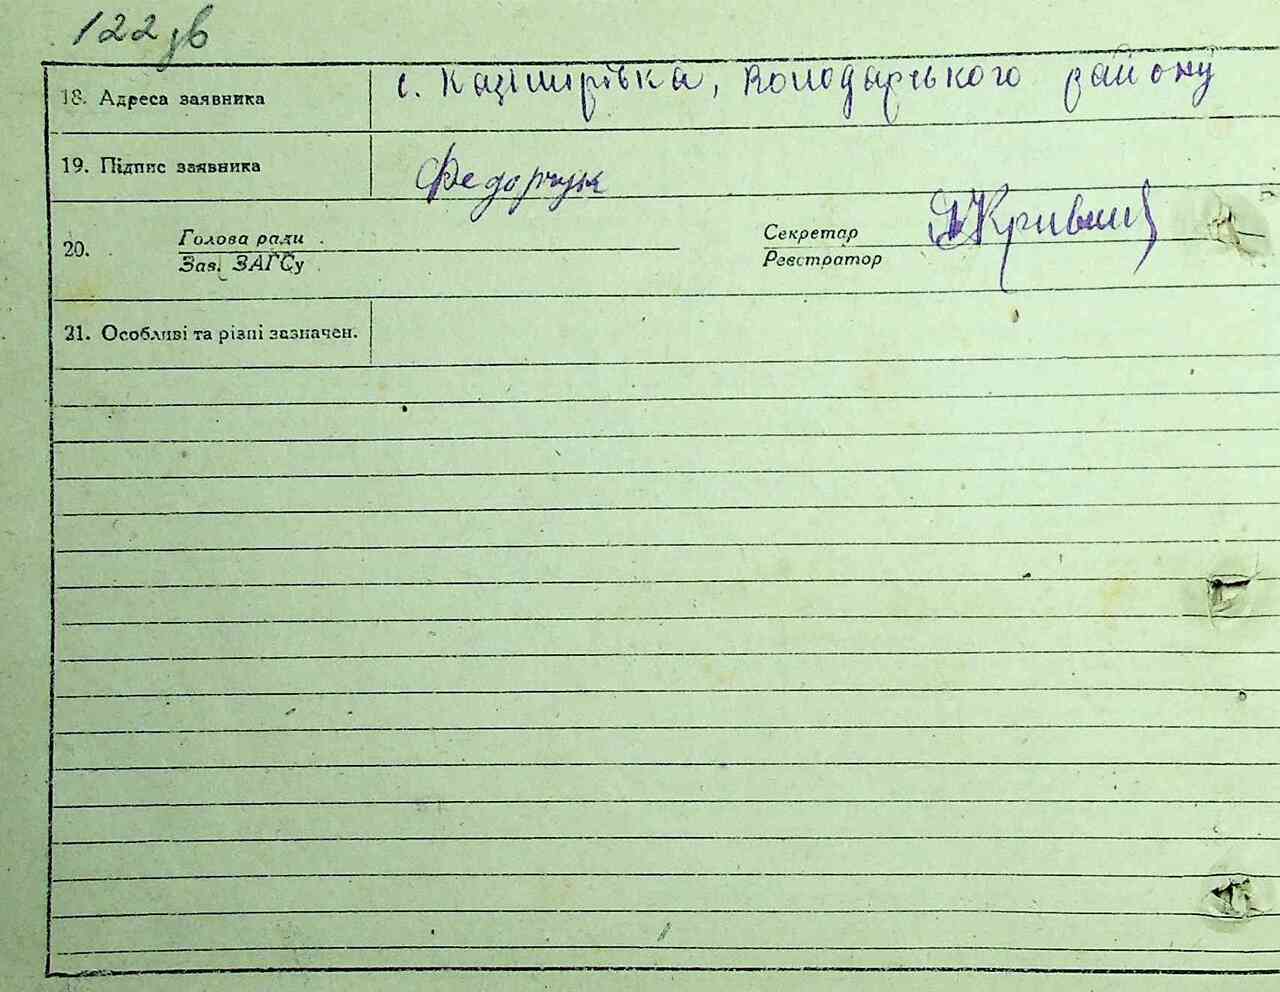 122 зв
18. Адреса заявника с. Казімирівка, Володарського району
19. Підпис заявника Федорчук
20. Голова ради Секретар
Зав. ЗАГСу Реєстратор
21. Особливі та різні зазначен.